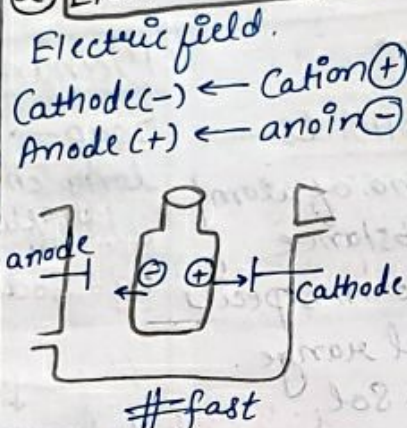 Electric field.
Cathode(-) ← Cation ⊕
Anode (+) ← anoin ⊖
anode ⊖ ⊕ Cathode
# fast